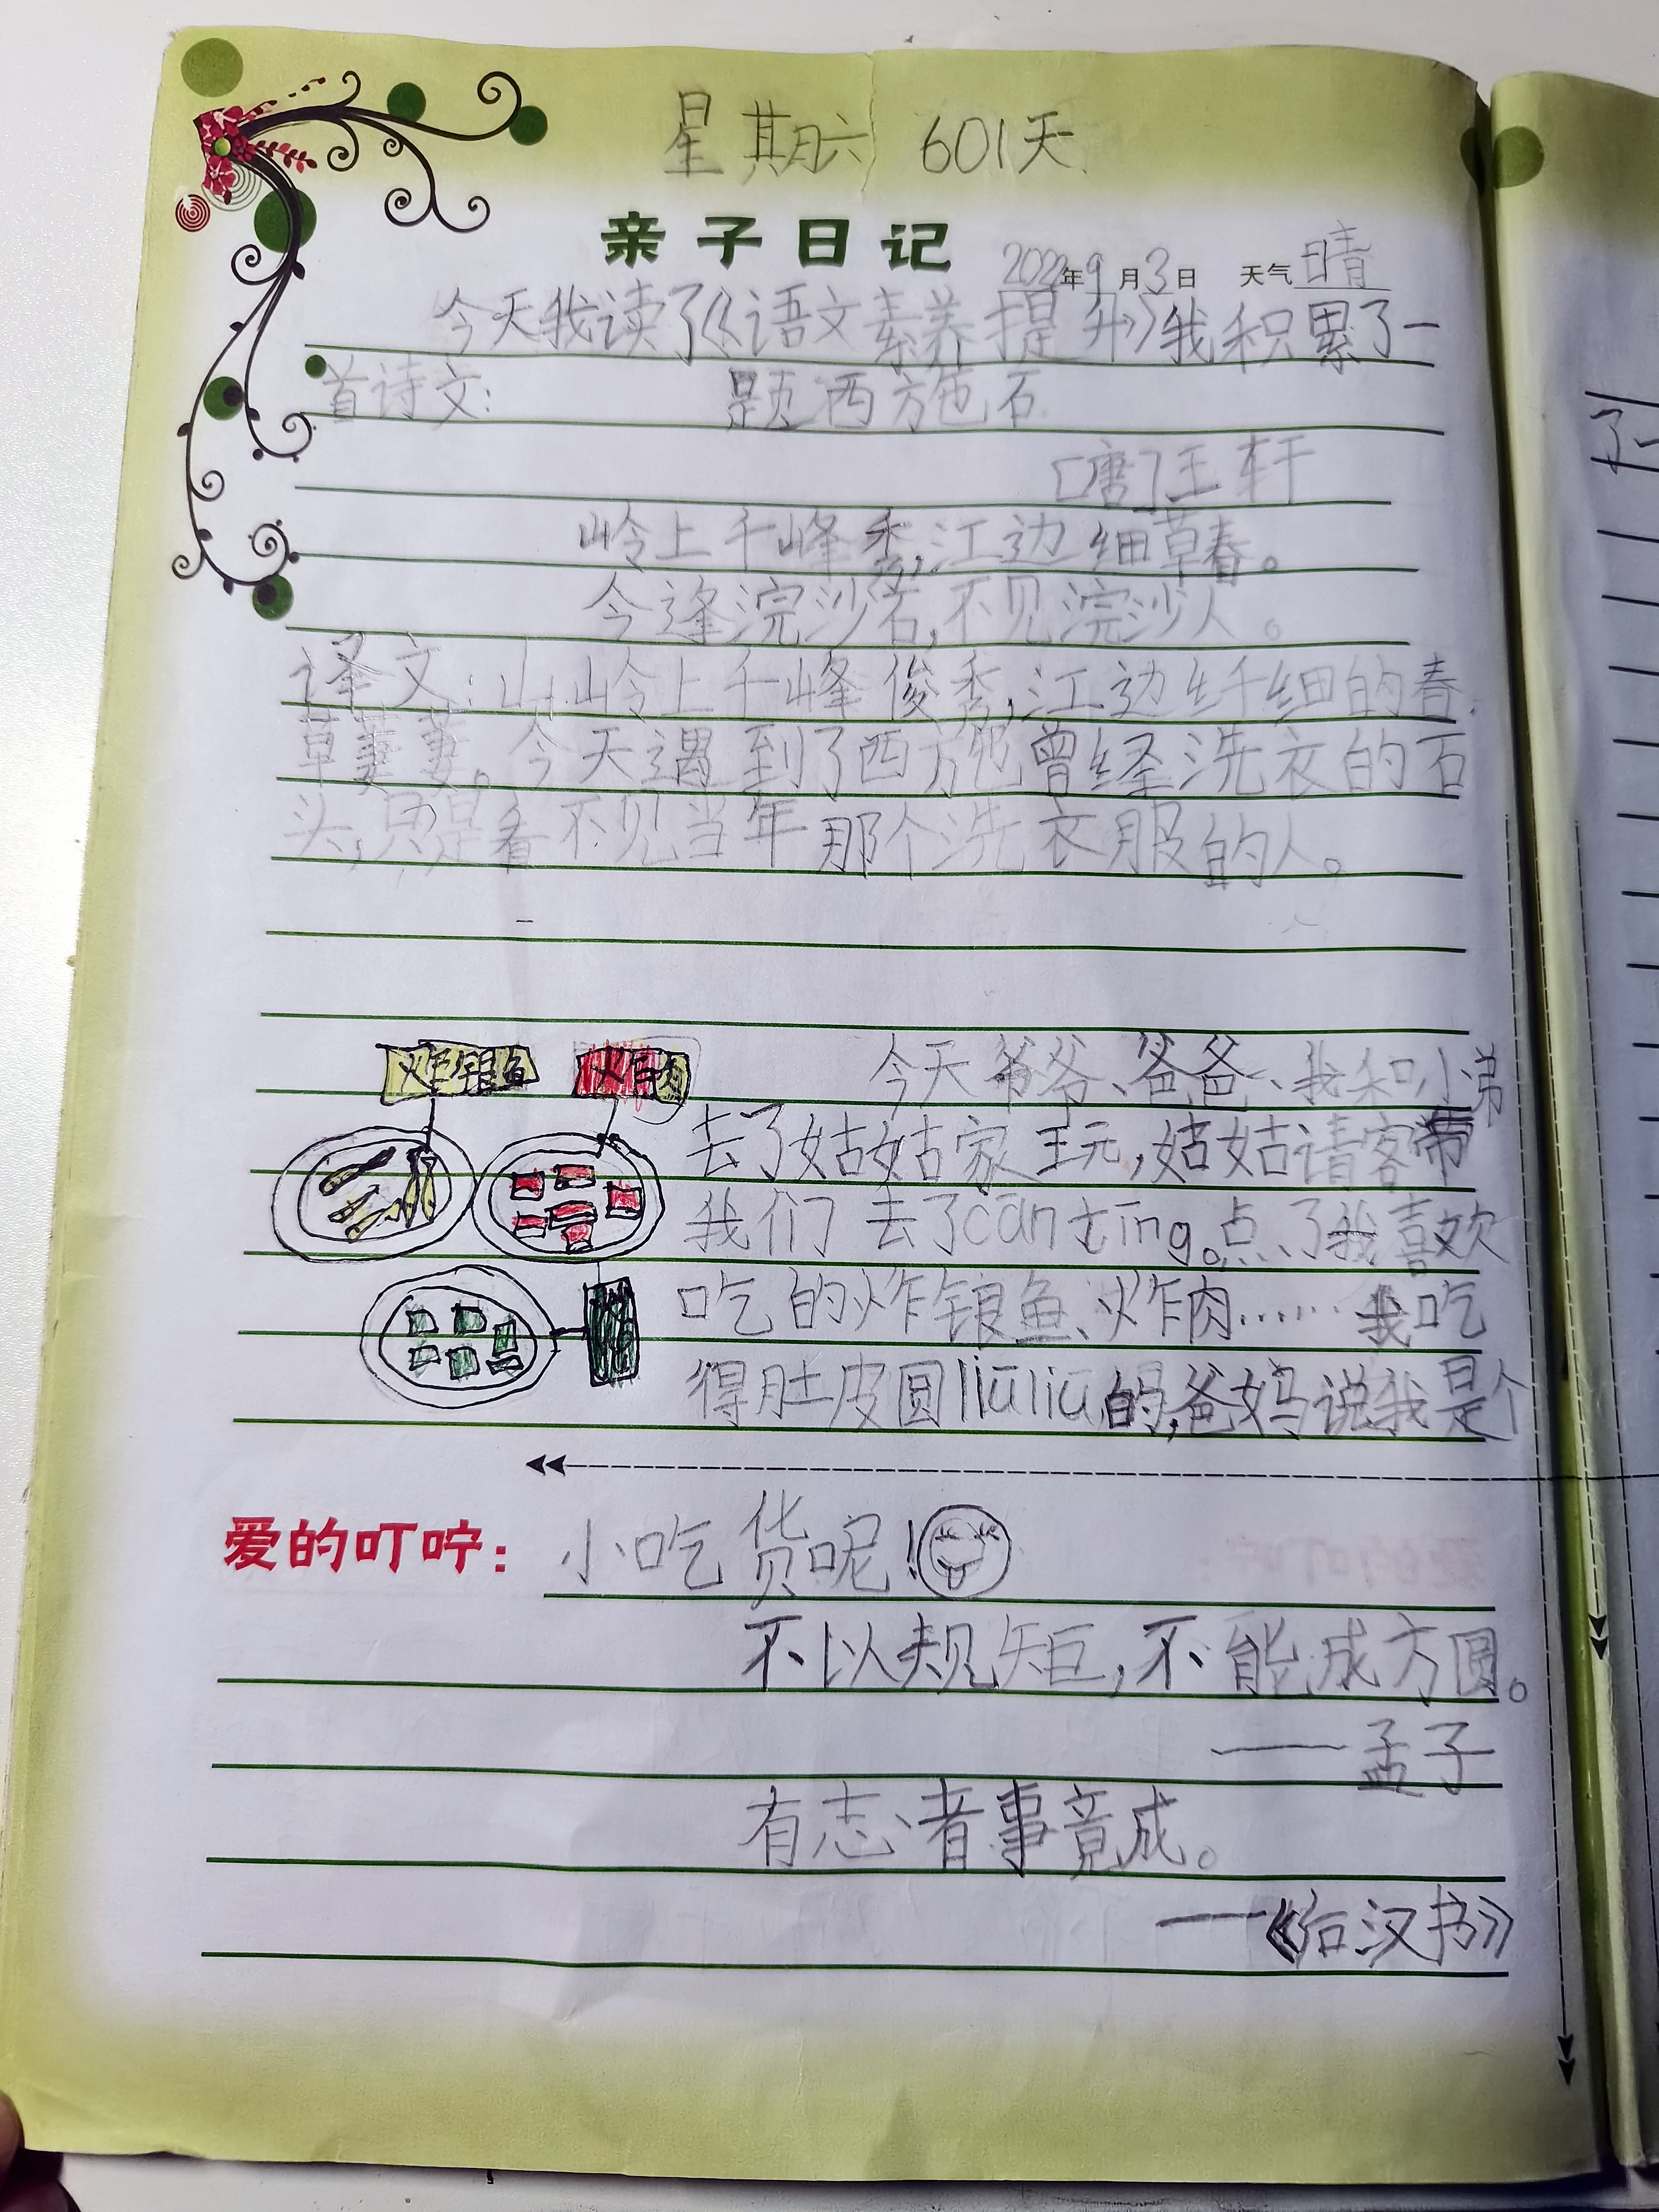 星期六 601天
亲子日记 2022年9月3日 天气晴
今天我读了《语文素养提升》我积累了一
首诗文: 题西施石
[唐]王轩
岭上千峰秀,江边细草春。
今逢浣沙石,不见浣沙人。
译文:山岭上千峰俊秀,江边纤细的春
草萋萋。今天遇到了西施曾经洗衣的石
头,只是看不见当年那个洗衣服的人。
炸银鱼 炸肉
今天爷爷、爸爸、我和小弟
去了姑姑家玩,姑姑请客带
我们去了cāntīng。点了我喜欢
吃的炸银鱼、炸肉……我吃
得肚皮圆liūliū的,爸妈说我是个
爱的叮咛: 小吃货呢!
不以规矩,不能成方圆。
——孟子
有志者事竟成。
——《后汉书》